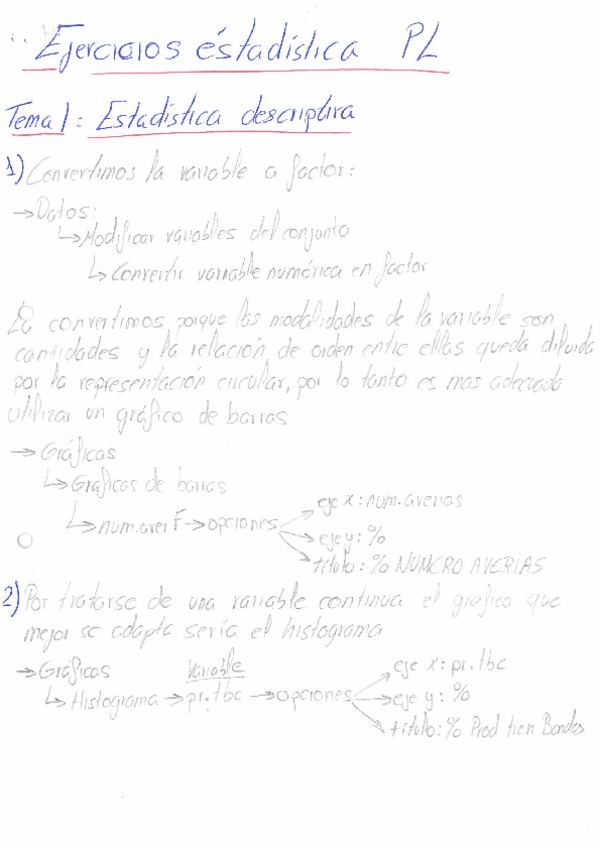 Ejercicios éstadística PL
Tema 1: Estadística descriptiva
1) Convertimos la variable a factor:
→ Datos:
↳ Modificar variables del conjunto
↳ Convertir variable numérica en factor
Lo convertimos porque las modalidades de la variable son
cantidades y la relación de orden entre ellas queda diluida
por la representación circular, por lo tanto es mas adecuado
utilizar un gráfico de barras
→ Gráficas
↳ Graficas de barras
↳ num.aver F → opciones
eje x: num.averias
eje y: %
título: % NUMERO AVERIAS
2) Por tratarse de una variable continua el grafico que
mejor se adapta sería el histograma
→ Gráficos
↳ Histograma → pr.tbc → opciones
Variable
eje x: pr.tbc
eje y: %
título: % Prod tien Bandas